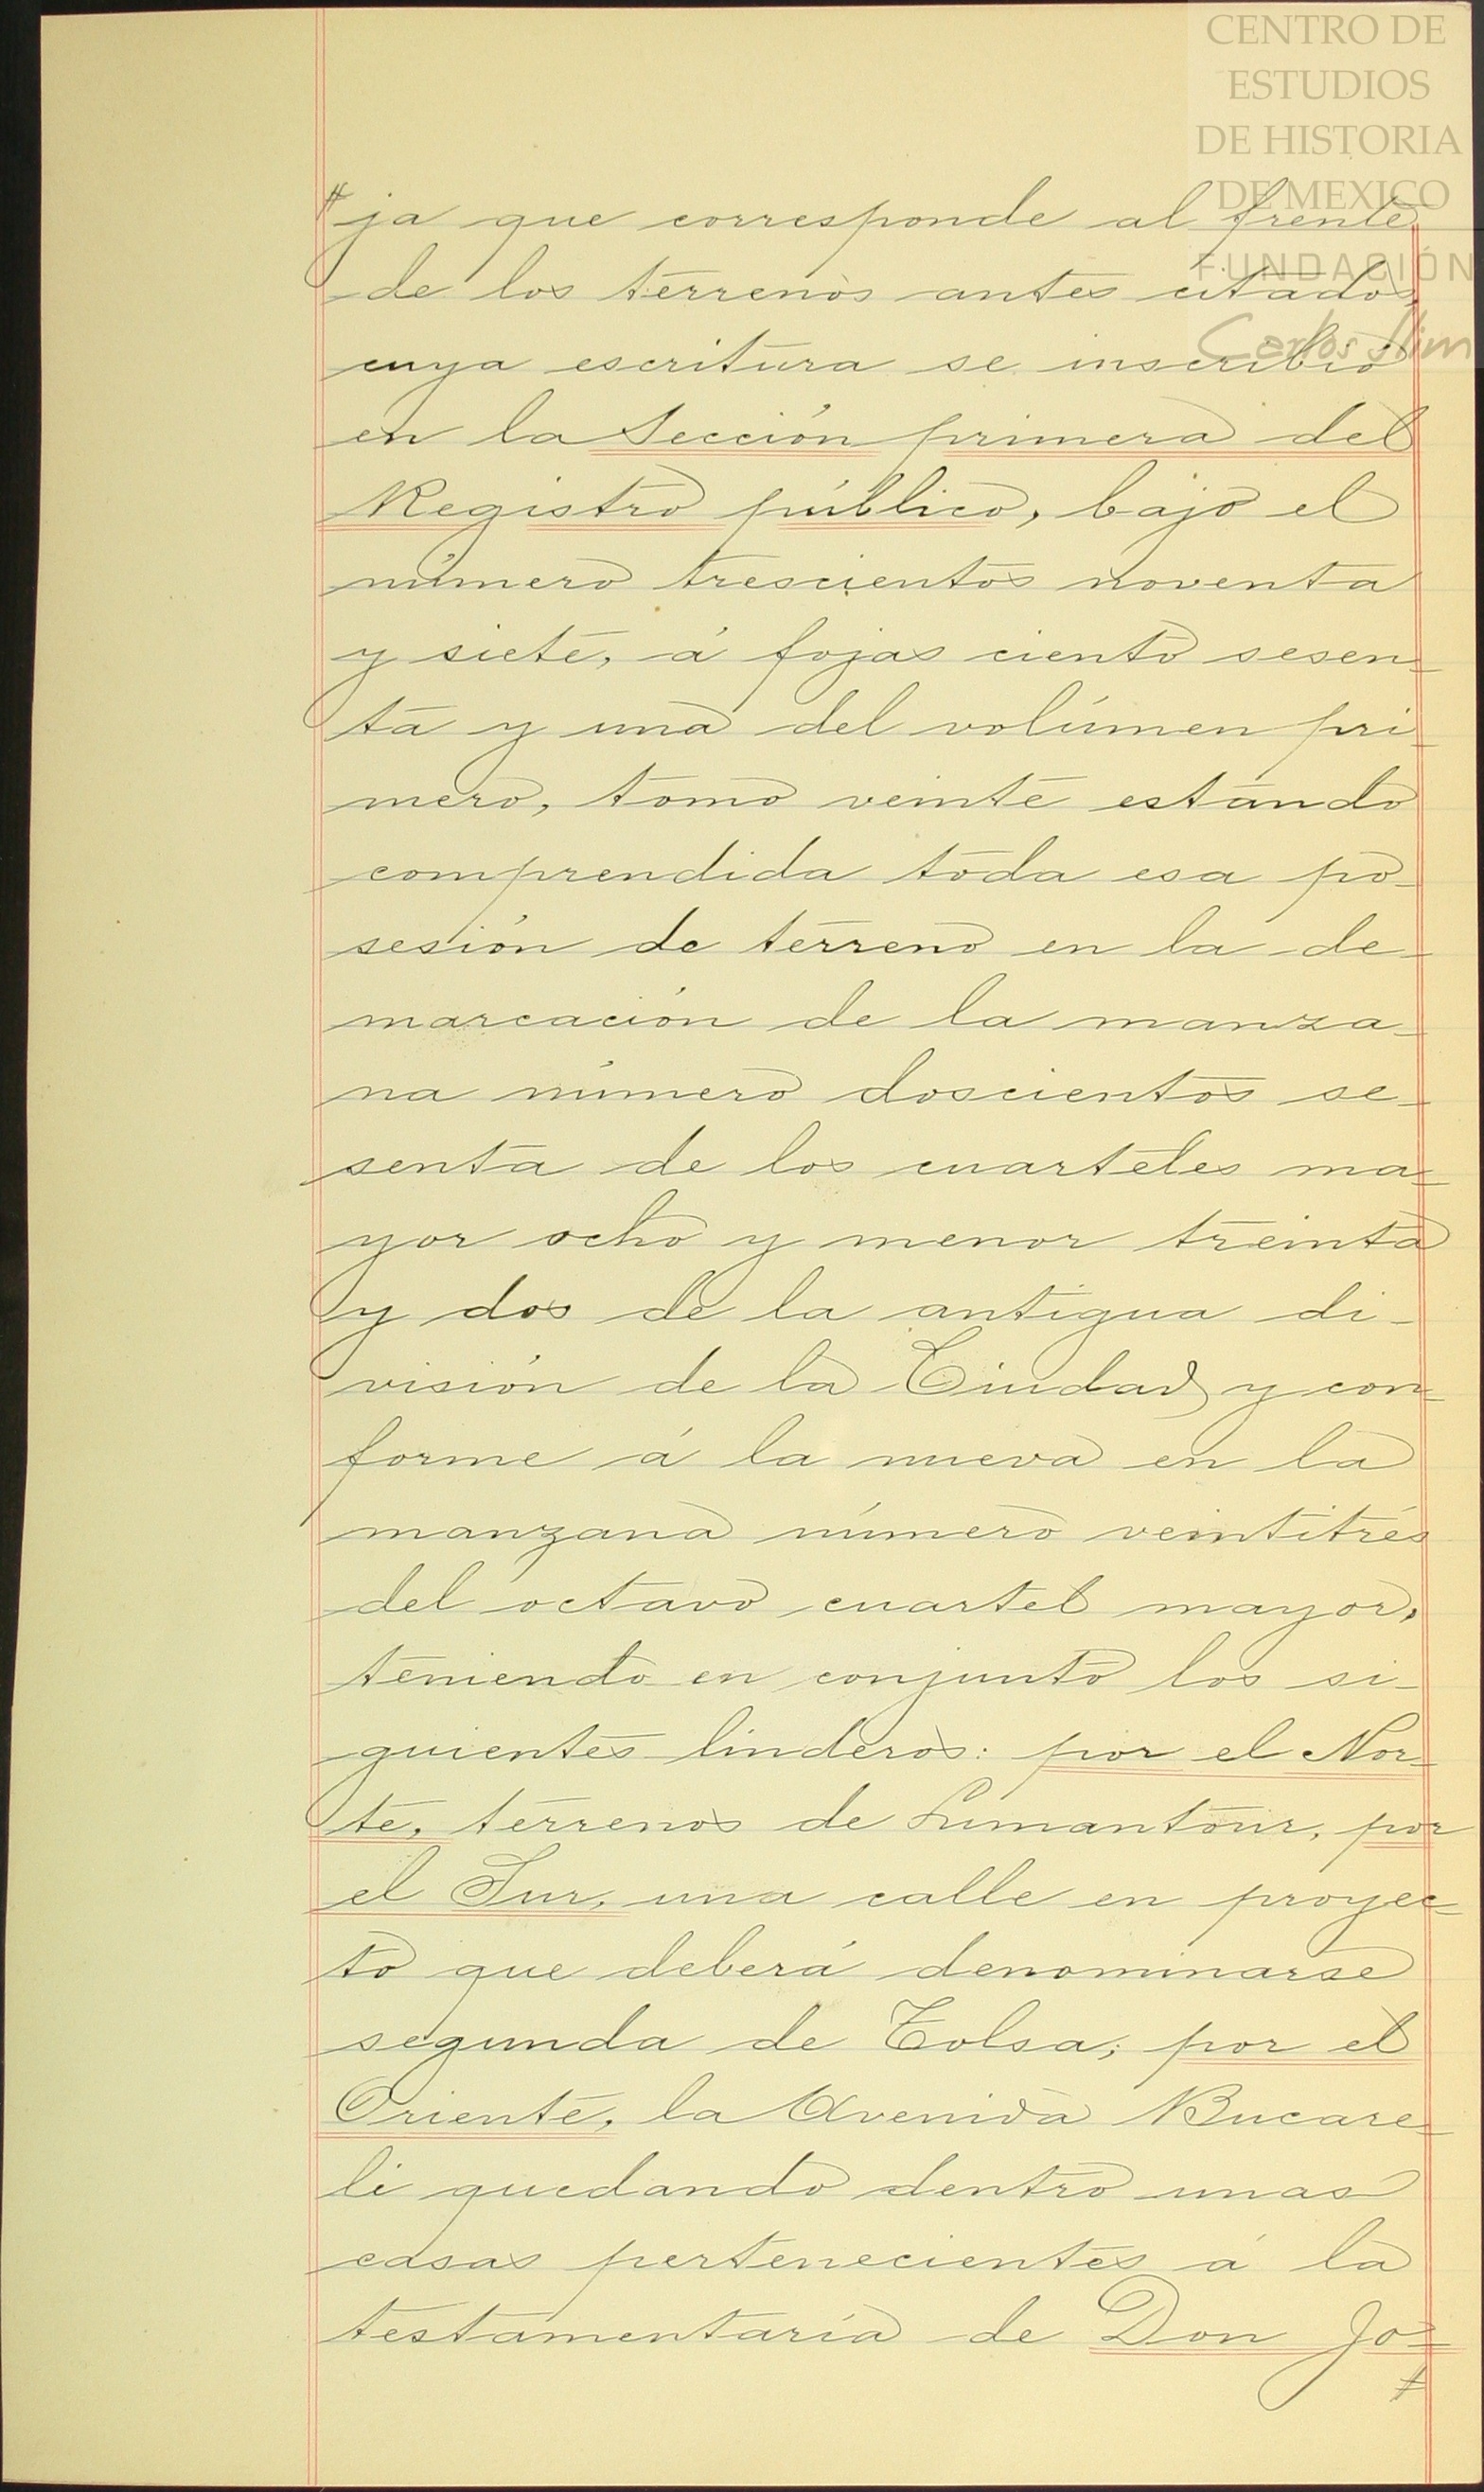 CENTRO DE
ESTUDIOS
DE HISTORIA
DE MEXICO
FUNDACIÓN
Carlos Slim
ja que corresponde al frente
de los terrenos antes citados,
cuya escritura se inscribió
en la Sección primera del
Registro público, bajo el
número trescientos noventa
y siete, á fojas ciento sesen-
ta y una del volúmen pri-
mero, tomo veinte estando
comprendida toda esa po-
sesión de terreno en la de-
marcación de la manza-
na número doscientos se-
senta de los cuarteles ma-
yor ocho y menor treinta
y dos de la antigua di-
visión de la Ciudad y con-
forme á la nueva en la
manzana número veintitrés
del octavo cuartel mayor,
teniendo en conjunto los si-
guientes linderos: por el Nor-
te, terrenos de Lumantour, por
el Sur, una calle en proyec-
to que deberá denominarse
segunda de Tolsa; por el
Oriente, la Avenida Bucare-
li quedando dentro unas
casas pertenecientes á la
testamentaría de Don Jo-